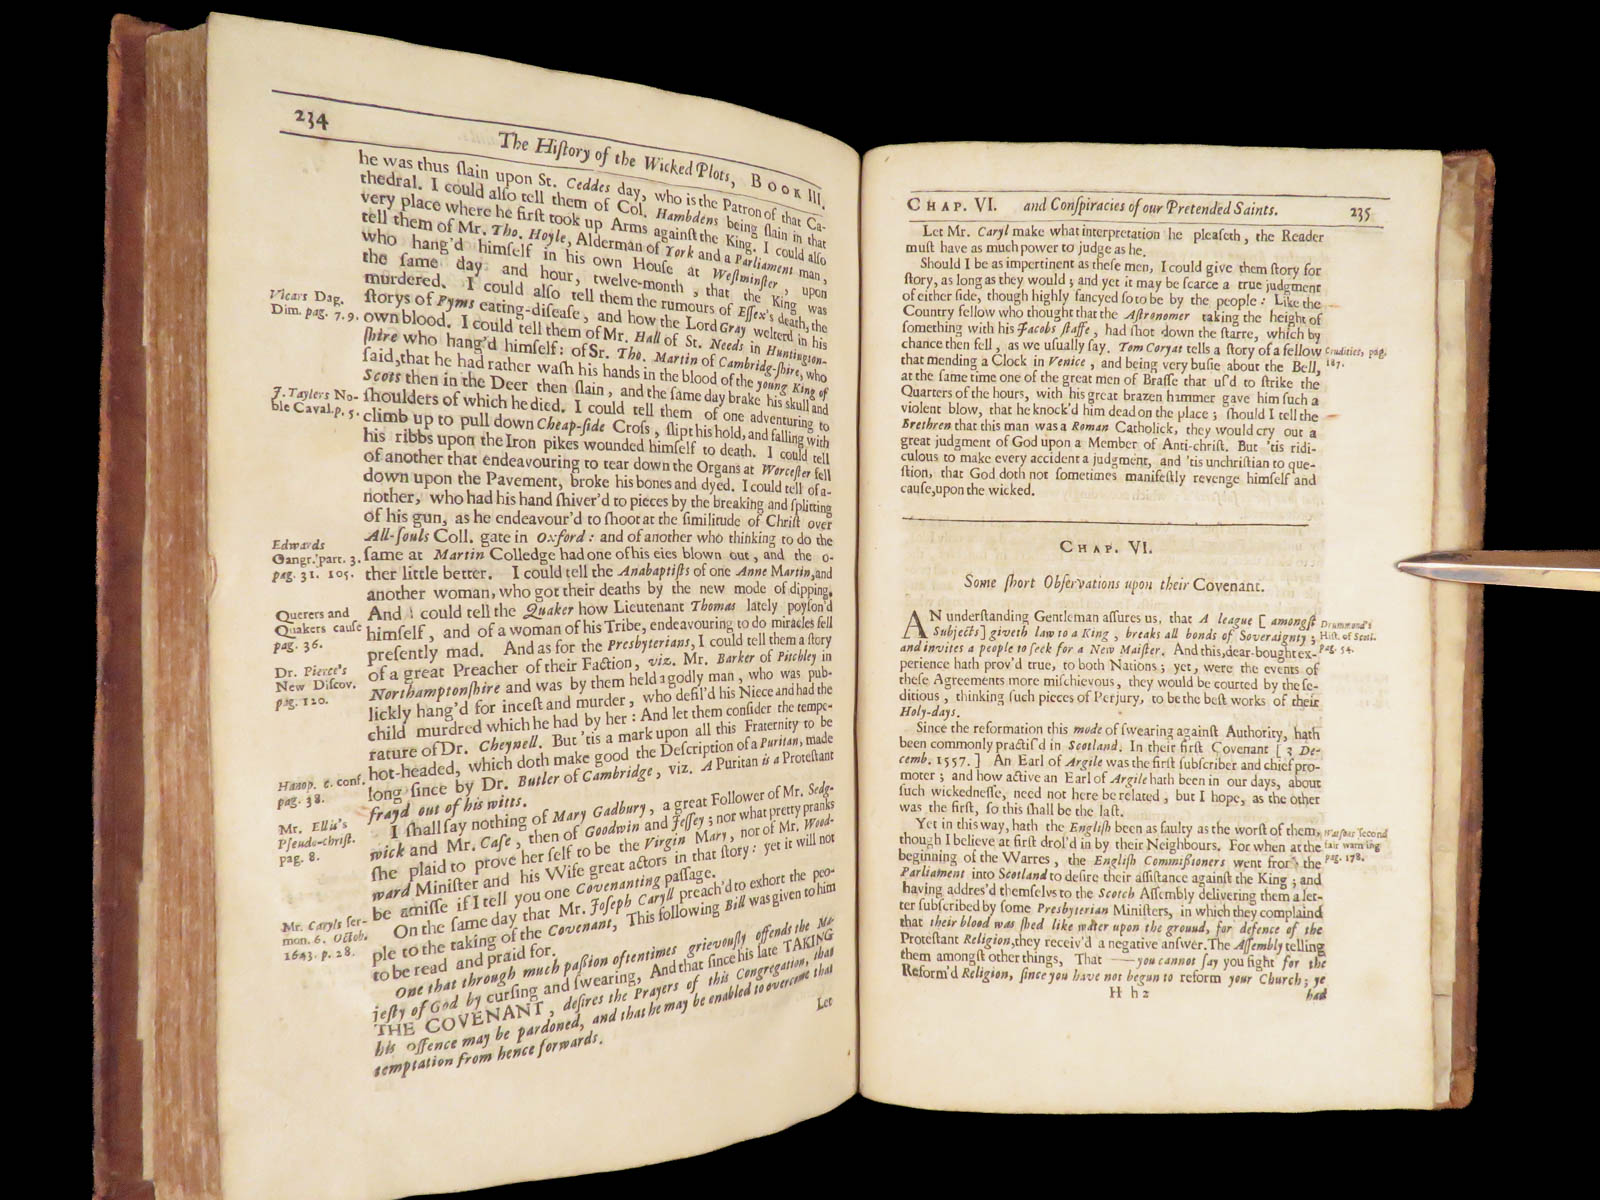 234
The Hiſtory of the Wicked Plots, BOOK III.
he was thus ſlain upon St. Ceddes day, who is the Patron of that Ca-
thedral. I could alſo tell them of Col. Hambdens being ſlain in that
very place where he firſt took up Arms againſt the King. I could alſo
tell them of Mr. Tho. Hoyle, Alderman of York and a Parliament man,
who hang'd himſelf in his own Houſe at Weſtminſter, upon
the ſame day and hour, twelve-month, that the King was
murdered. I could alſo tell them the rumours of Eſſex's death, the
ſtorys of Pyms eating-diſeaſe, and how the Lord Gray welterd in his
own blood. I could tell them of Mr. Hall of St. Needs in Huntington-
ſhire who hang'd himſelf: of Sr. Tho. Martin of Cambridg-ſhire, who
ſaid, that he had rather waſh his hands in the blood of the young King of
Scots then in the Deer then ſlain, and the ſame day brake his skull and
ſhoulders of which he died. I could tell them of one adventuring to
climb up to pull down Cheap-ſide Croſs, ſlipt his hold, and falling with
his ribbs upon the Iron pikes wounded himſelf to death. I could tell
of another that endeavouring to tear down the Organs at Worceſter fell
down upon the Pavement, broke his bones and dyed. I could tell of a-
nother, who had his hand ſhiver'd to pieces by the breaking and ſplitting
of his gun, as he endeavour'd to ſhoot at the ſimilitude of Chriſt over
All-ſouls Coll. gate in Oxford: and of another who thinking to do the
ſame at Martin Colledge had one of his eies blown out, and the o-
ther little better. I could tell the Anabaptiſts of one Anne Martin, and
another woman, who got their deaths by the new mode of dipping.
And I could tell the Quaker how Lieutenant Thomas lately poyſon'd
himſelf, and of a woman of his Tribe, endeavouring to do miracles fell
preſently mad. And as for the Presbyterians, I could tell them a ſtory
of a great Preacher of their Faction, viz. Mr. Barker of Pitchley in
Northamptonſhire and was by them held a godly man, who was pub-
lickly hang'd for inceſt and murder, who defil'd his Niece and had the
child murdred which he had by her: And let them conſider the tempe-
rature of Dr. Cheynell. But 'tis a mark upon all this Fraternity to be
hot-headed, which doth make good the Deſcription of a Puritan, made
long ſince by Dr. Butler of Cambridge, viz. A Puritan is a Proteſtant
frayd out of his witts.
I ſhall ſay nothing of Mary Gadbury, a great Follower of Mr. Sedg-
wick and Mr. Caſe, then of Goodwin and Jeſſey; nor what pretty pranks
ſhe plaid to prove her ſelf to be the Virgin Mary, nor of Mr. Wood-
ward Miniſter and his Wife great actors in that ſtory: yet it will not
be amiſſe if I tell you one Covenanting paſſage.
On the ſame day that Mr. Joſeph Caryll preach'd to exhort the peo-
ple to the taking of the Covenant, This following Bill was given to him
to be read and praid for.
One that through much paſſion oftentimes grievouſly offends the Ma-
jeſty of God by curſing and ſwearing, And that ſince his late TAKING
THE COVENANT, deſires the Prayers of this Congregation, that
his offence may be pardoned, and that he may be enabled to overcome that
temptation from hence forwards.
Let
Vicars Dag.
Dim. pag. 7. 9.
J. Taylers No-
ble Caval. p. 5.
Edwards
Gangr. part. 3.
pag. 31. 105.
Querers and
Quakers cauſe
pag. 36.
Dr. Pierce's
New Diſcov.
pag. 120.
Hanop. e. conf.
pag. 38.
Mr. Ellis's
Pſeudo-chriſt.
pag. 8.
Mr. Caryls ſer-
mon. 6. Octob.
1643. p. 28.
CHAP. VI. and Conſpiracies of our Pretended Saints. 235
Let Mr. Caryl make what interpretation he pleaſeth, the Reader
muſt have as much power to judge as he.
Should I be as impertinent as theſe men, I could give them ſtory for
ſtory, as long as they would; and yet it may be ſcarce a true judgment
of either ſide, though highly fancyed ſo to be by the people: Like the
Country fellow who thought that the Aſtronomer taking the height of
ſomething with his Jacobs ſtaffe, had ſhot down the ſtarre, which by
chance then fell, as we uſually ſay. Tom Coryat tells a ſtory of a fellow
that mending a Clock in Venice, and being very buſie about the Bell,
at the ſame time one of the great men of Braſſe that uſ'd to ſtrike the
Quarters of the hours, with his great brazen hammer gave him ſuch a
violent blow, that he knock'd him dead on the place; ſhould I tell the
Brethren that this man was a Roman Catholick, they would cry out a
great judgment of God upon a Member of Anti-chriſt. But 'tis ridi-
culous to make every accident a judgment, and 'tis unchriſtian to que-
ſtion, that God doth not ſometimes manifeſtly revenge himſelf and
cauſe, upon the wicked.
Crudities, pag.
187.
CHAP. VI.
Some ſhort Obſervations upon their Covenant.
AN underſtanding Gentleman aſſures us, that A league [ amongſt
Subjects] giveth law to a King, breaks all bonds of Soveraignty;
and invites a people to ſeek for a New Maiſter. And this, dear-bought ex-
perience hath prov'd true, to both Nations; yet, were the events of
theſe Agreements more miſchievous, they would be courted by the ſe-
ditious, thinking ſuch pieces of Perjury, to be the beſt works of their
Holy-days.
Since the reformation this mode of ſwearing againſt Authority, hath
been commonly practiſ'd in Scotland. In their firſt Covenant [ 3 De-
cemb. 1557. ] An Earl of Argile was the firſt ſubſcriber and chief pro-
moter; and how active an Earl of Argile hath been in our days, about
ſuch wickedneſſe, need not here be related, but I hope, as the other
was the firſt, ſo this ſhall be the laſt.
Yet in this way, hath the Engliſh been as faulty as the worſt of them,
though I believe at firſt drol'd in by their Neighbours. For when at the
beginning of the Warres, the Engliſh Commiſſioners went from the
Parliament into Scotland to deſire their aſſiſtance againſt the King; and
having addreſ'd themſelvs to the Scotch Aſſembly delivering them a let-
ter ſubſcribed by ſome Presbyterian Miniſters, in which they complaind
that their blood was ſhed like water upon the ground, for defence of the
Proteſtant Religion, they receiv'd a negative anſwer. The Aſſembly telling
them amongſt other things, That —— you cannot ſay you fight for the
Reform'd Religion, ſince you have not begun to reform your Church; ye
H h 2 had
Drummond's
Hiſt. of Scotl.
pag. 54.
Watſons Second
fair warning
pag. 178.